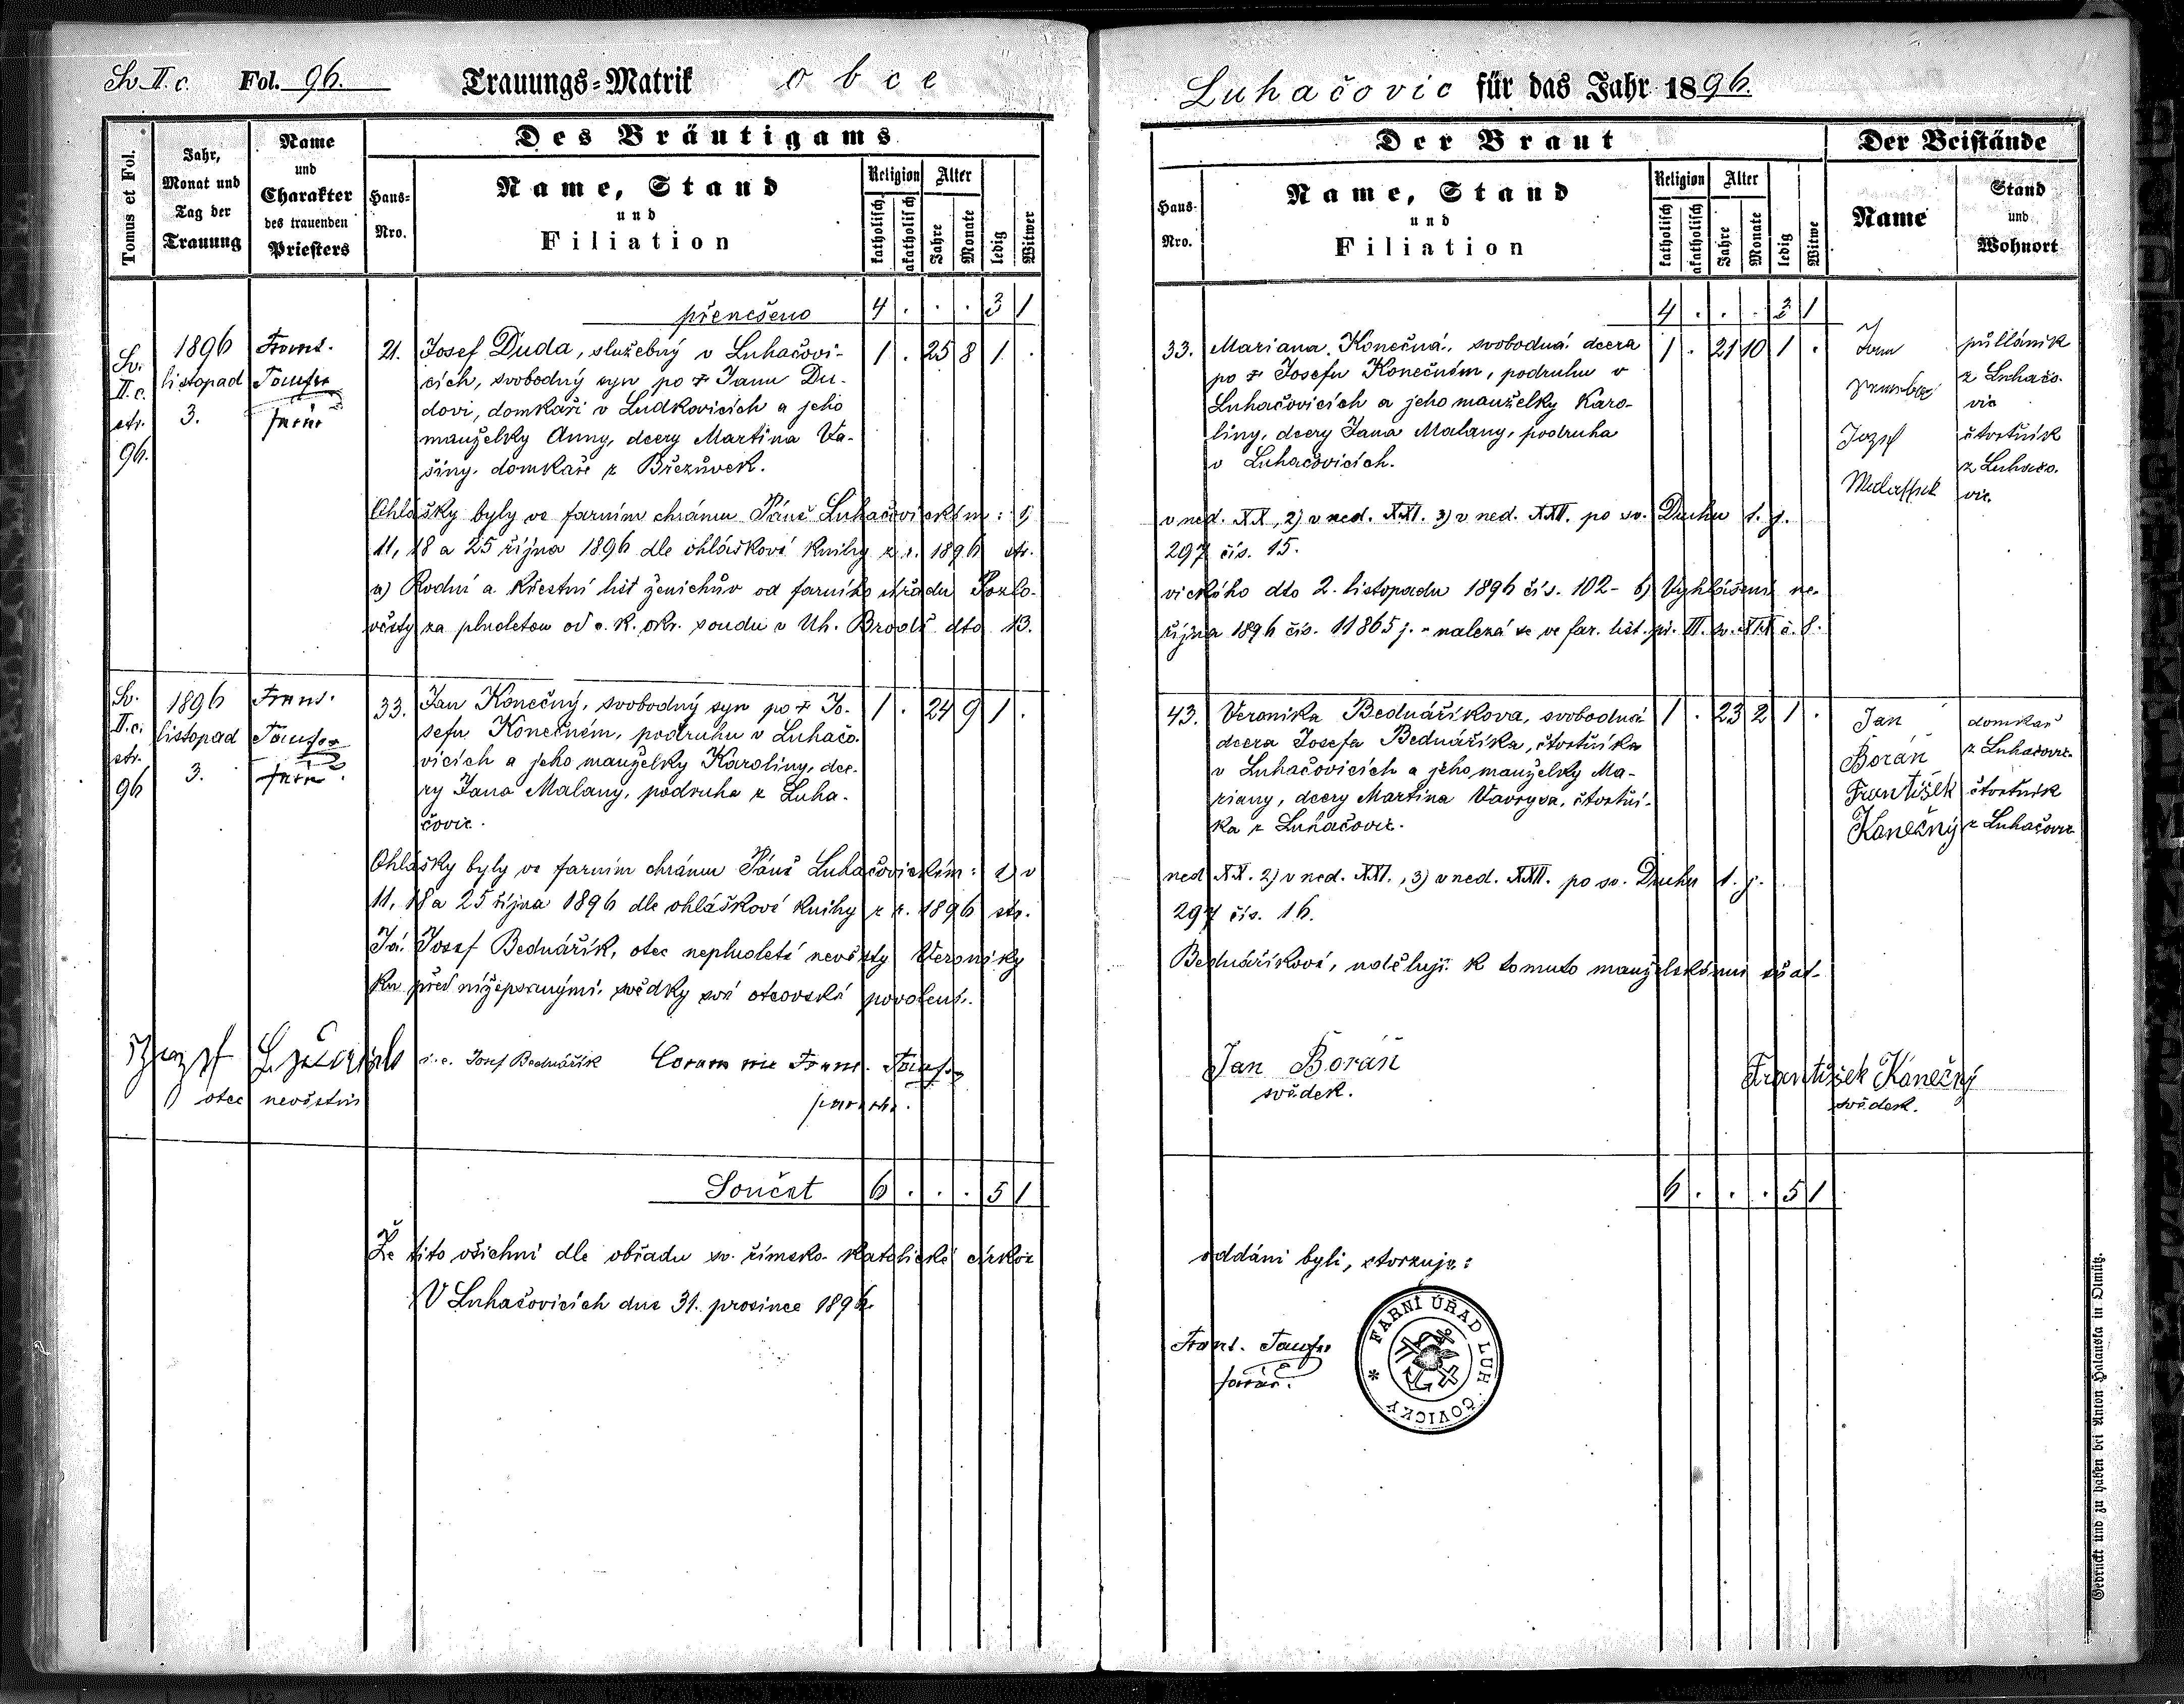 Sv. II. c. Fol. 96. Trauungs=Matrik obce
Tomus et Fol.
Jahr,
Monat und
Tag der
Trauung
Name
und
Charakter
des trauenden
Priesters
Des Bräutigams
Haus=
Nro.
Name, Stand
und
Filiation
Religion
katholisch
akatholisch
Alter
Jahre
Monate
ledig
Witwer
přenešeno 4 . . . 3 1
Sv.
II. c.
str.
96.
1896
listopad
3.
Frant.
farář
21.
Josef Duda, služebný v Luhačovi-
cích, svobodný syn po ✝ Janu Du-
dovi, domkaři v Ludkovicích a jeho
manželky Anny, dcery Martina Va-
šiny, domkaře z Březůvek.
1 . 25 8 1 .
Ohlášky byly ve farním chrámu Páně Luhačovickém: 1)
11, 18 a 25 října 1896 dle ohláškové knihy z r. 1896 str.
a) Rodní a křestní list ženichův od farního úřadu Pozlo-
věsty za plnoletou od c. k. okr. soudu v Uh. Brodě dto 13.
Sv.
II. c.
str.
96
1896
listopad
3.
Frant.
farář
33.
Jan Konečný, svobodný syn po ✝ Jo-
sefu Konečném, podruhu v Luhačo-
vicích a jeho manželky Karoliny, dce-
ry Jana Malany, podruha z Luha-
čovic.
1 . 24 9 1 .
Ohlášky byly ve farním chrámu Páně Luhačovickém: 1) v
11, 18 a 25 října 1896 dle ohláškové knihy z r. 1896 str.
Já Josef Bednářík, otec neplnoleté nevěsty Veroniky
ku před nížepsanými svědky své otcovské povolení.
i. e. Josef Bednářík Coram me Frant.
otec nevěstin
Součet 6 . . . 5 1
Že tito všichni dle obřadu sv. římsko-katolické církve
V Luhačovicích dne 31. prosince 1896.
Luhačovic für das Jahr 1896.
Der Braut
Haus-
Nro.
Name, Stand
und
Filiation
Religion
katholisch
akatholisch
Alter
Jahre
Monate
ledig
Witwe
Der Beistände
Name
Stand
und
Wohnort
4 . . . 3 1
33.
Mariana Konečná, svobodná dcera
po ✝ Josefu Konečném, podruhu v
Luhačovicích a jeho manželky Karo-
liny, dcery Jana Malany, podruha
v Luhačovicích.
1 . 21 10 1 .
půlláník
z Luhačo-
vic
Jozef
čtvrtník
z Luhačo-
vic
v ned. XX, 2) v ned. XXI. 3) v ned. XXII. po sv. Duchu t. j.
297 čís. 15.
vického dto 2. listopadu 1896 čís. 102 - b) Vyhlášení ne-
října 1896 čís. 11865 j. - nalezá se ve far. list.
43.
Veronika Bednáříkova, svobodná
dcera Josefa Bednáříka, čtvrtníka
v Luhačovicích a jeho manželky Ma-
riany, dcery Martina Vavryse, čtvrtní-
ka z Luhačovic.
1 . 23 2 1 .
Jan
Boráň
František
Konečný
domkař
z Luhačovic
čtvrtník
z Luhačovic
ned. XX. 2) v ned. XXI., 3) v ned. XXII. po sv. Duchu t. j.
297 čís. 16.
Bednáříkové, uděluji k tomuto manželskému sňat-
Jan Boráň
svědek.
František Konečný
svědek.
6 . . . 5 1
oddáni byli, stvrzuje:
Frant.
farář.
FARNÍ ÚŘAD LUH ČOVICKÝ *
Gedruckt und zu haben bei Anton Halauska in Olmütz.